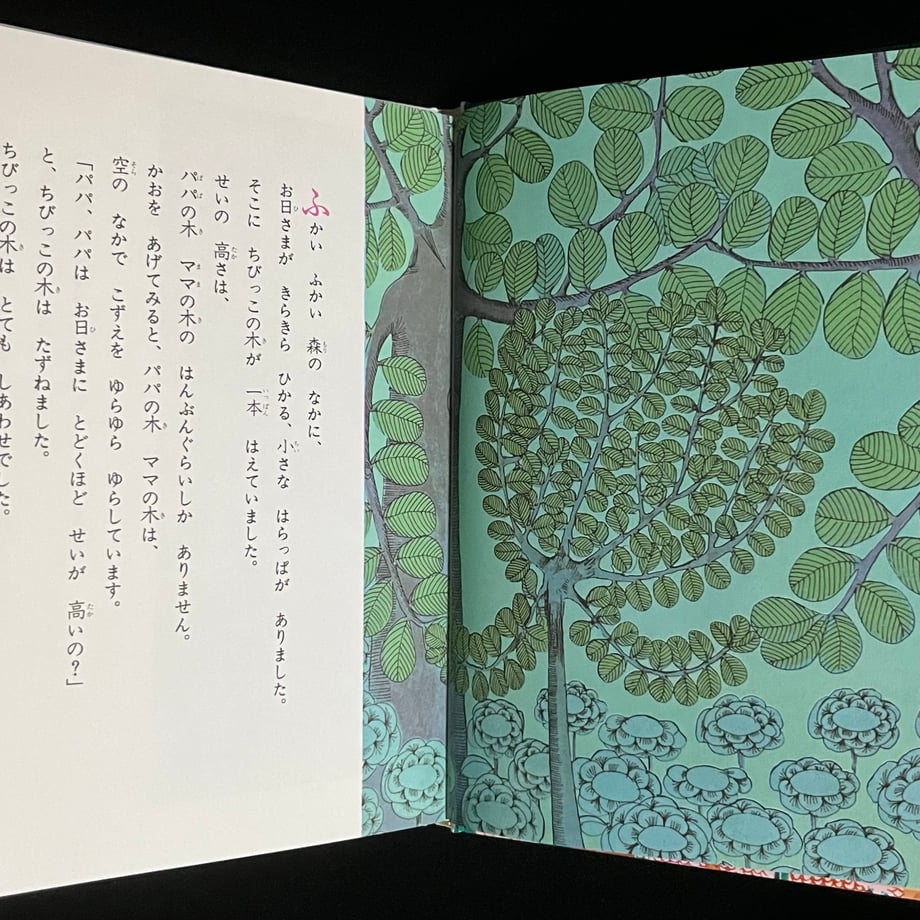 ふかい　ふかい　森の　なかに、
お日さまが　きらきら　ひかる、小さな　はらっぱが　ありました。
そこに　ちびっこの木が　一本　はえていました。
せいの　高さは、
パパの木　ママの木の　はんぶんぐらいしか　ありません。
かおを　あげてみると、パパの木　ママの木は、
空の　なかで　こずえを　ゆらゆら　ゆらしています。
「パパ、パパは　お日さまに　とどくほど　せいが　高いの？」
と、ちびっこの木は　たずねました。
ちびっこの木は　とても　しあわせでした。